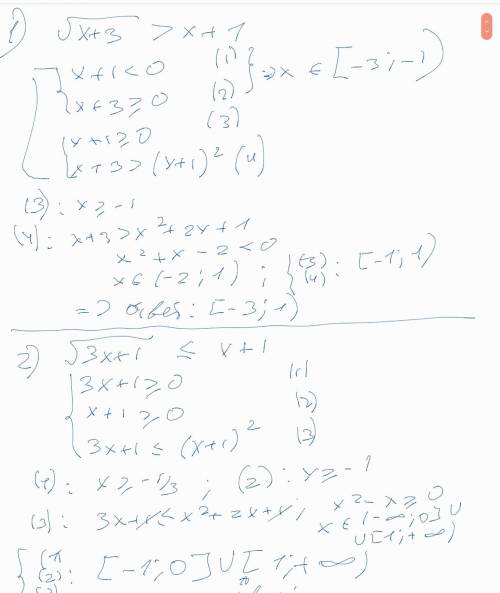 1) √x+3 > x+1
x+1<0 (1)
x+3≥0 (2) } => x ∈ [-3;-1)
x+1≥0 (3)
x+3>(x+1)² (4)
(3): x≥-1
(4): x+3>x²+2x+1
x²+x-2<0
x∈(-2;1) ; { (3) (4) : [-1;1)
=> ответ: [-3;1)
2) √3x+1 ≤ x+1
3x+1≥0 (1)
x+1≥0 (2)
3x+1≤(x+1)² (3)
(1): x≥-1/3 ; (2): x≥-1
(3): 3x+1≤x²+2x+1; x²-x≥0
x∈(-∞;0]∪
∪[1;+∞)
(1)
(2): [-1;0]∪[1;+∞)